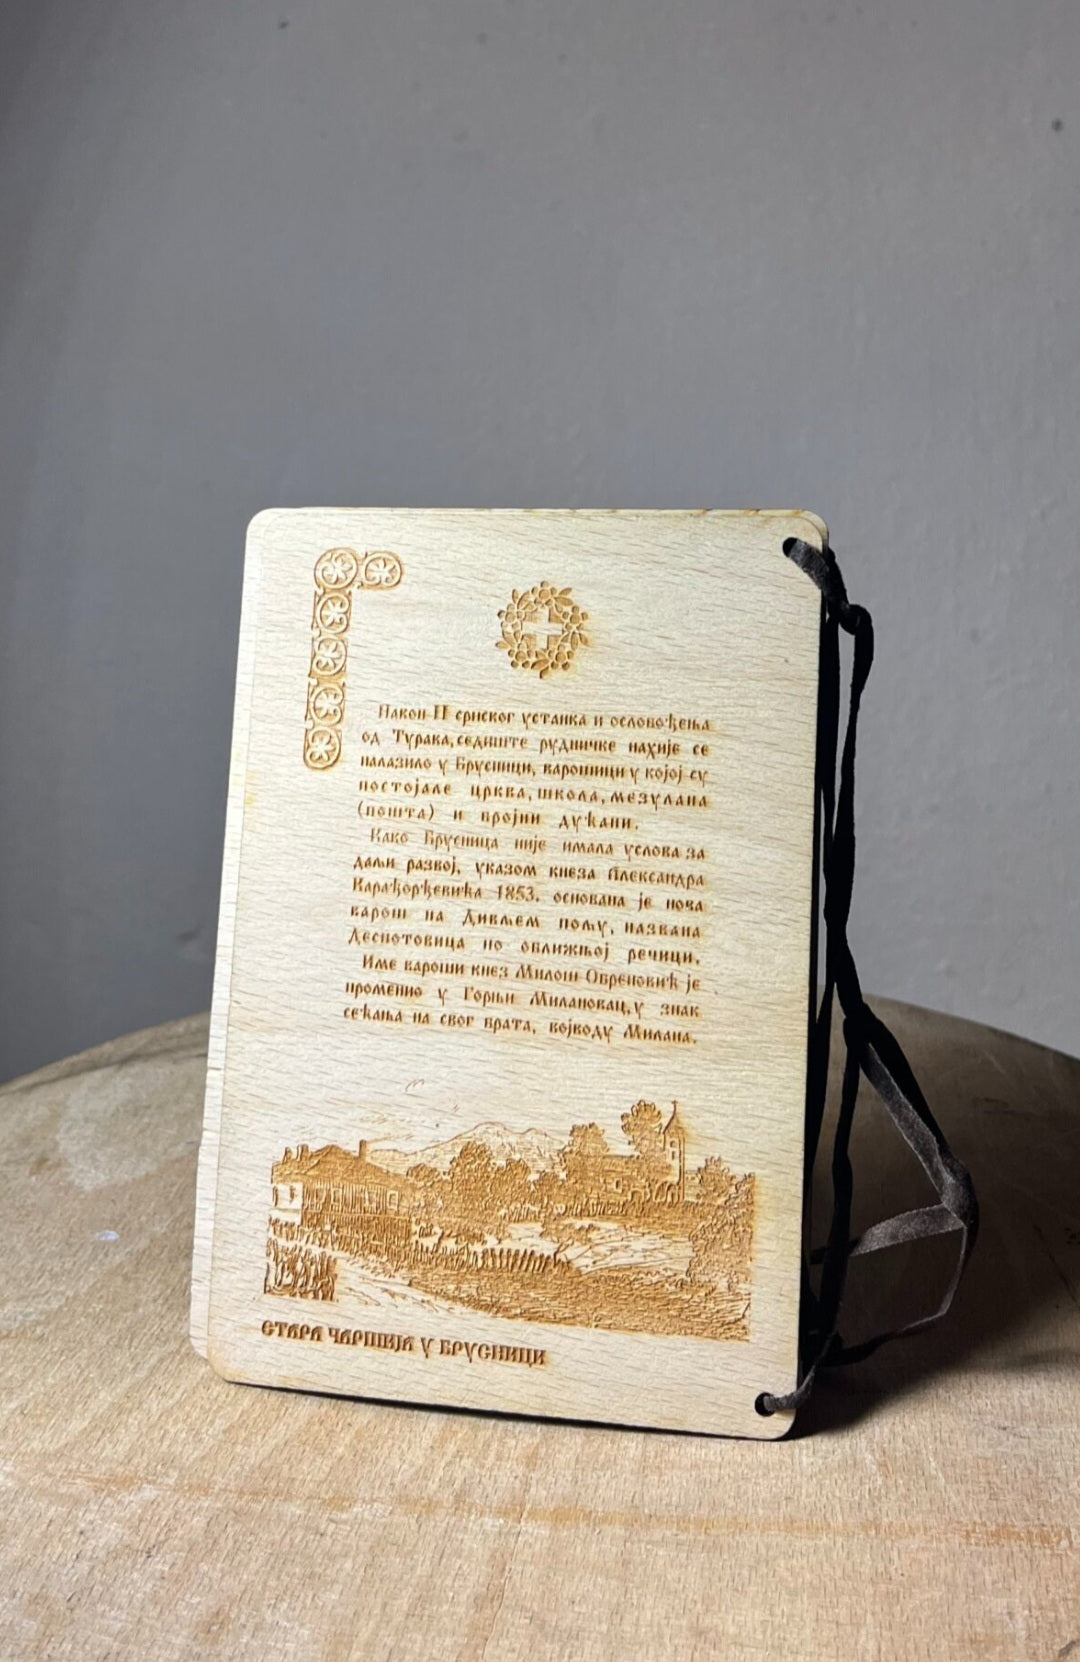 Након II српског устанка и ослобођења
од Турака, седиште рудничке нахије се
налазило у Брусници, варошици у којој су
постојале црква, школа, мезулана
(пошта) и бројни дућани.
Како Брусница није имала услова за
даљи развој, указом кнеза Александра
Карађорђевића 1853. основана је нова
варош на Дивљем пољу, названа
Деспотовица по оближњој речици.
Име вароши кнез Милош Обреновић је
променио у Горњи Милановац, у знак
сећања на свог брата, војводу Милана.
СТАРА ЧАРШИЈА У БРУСНИЦИ